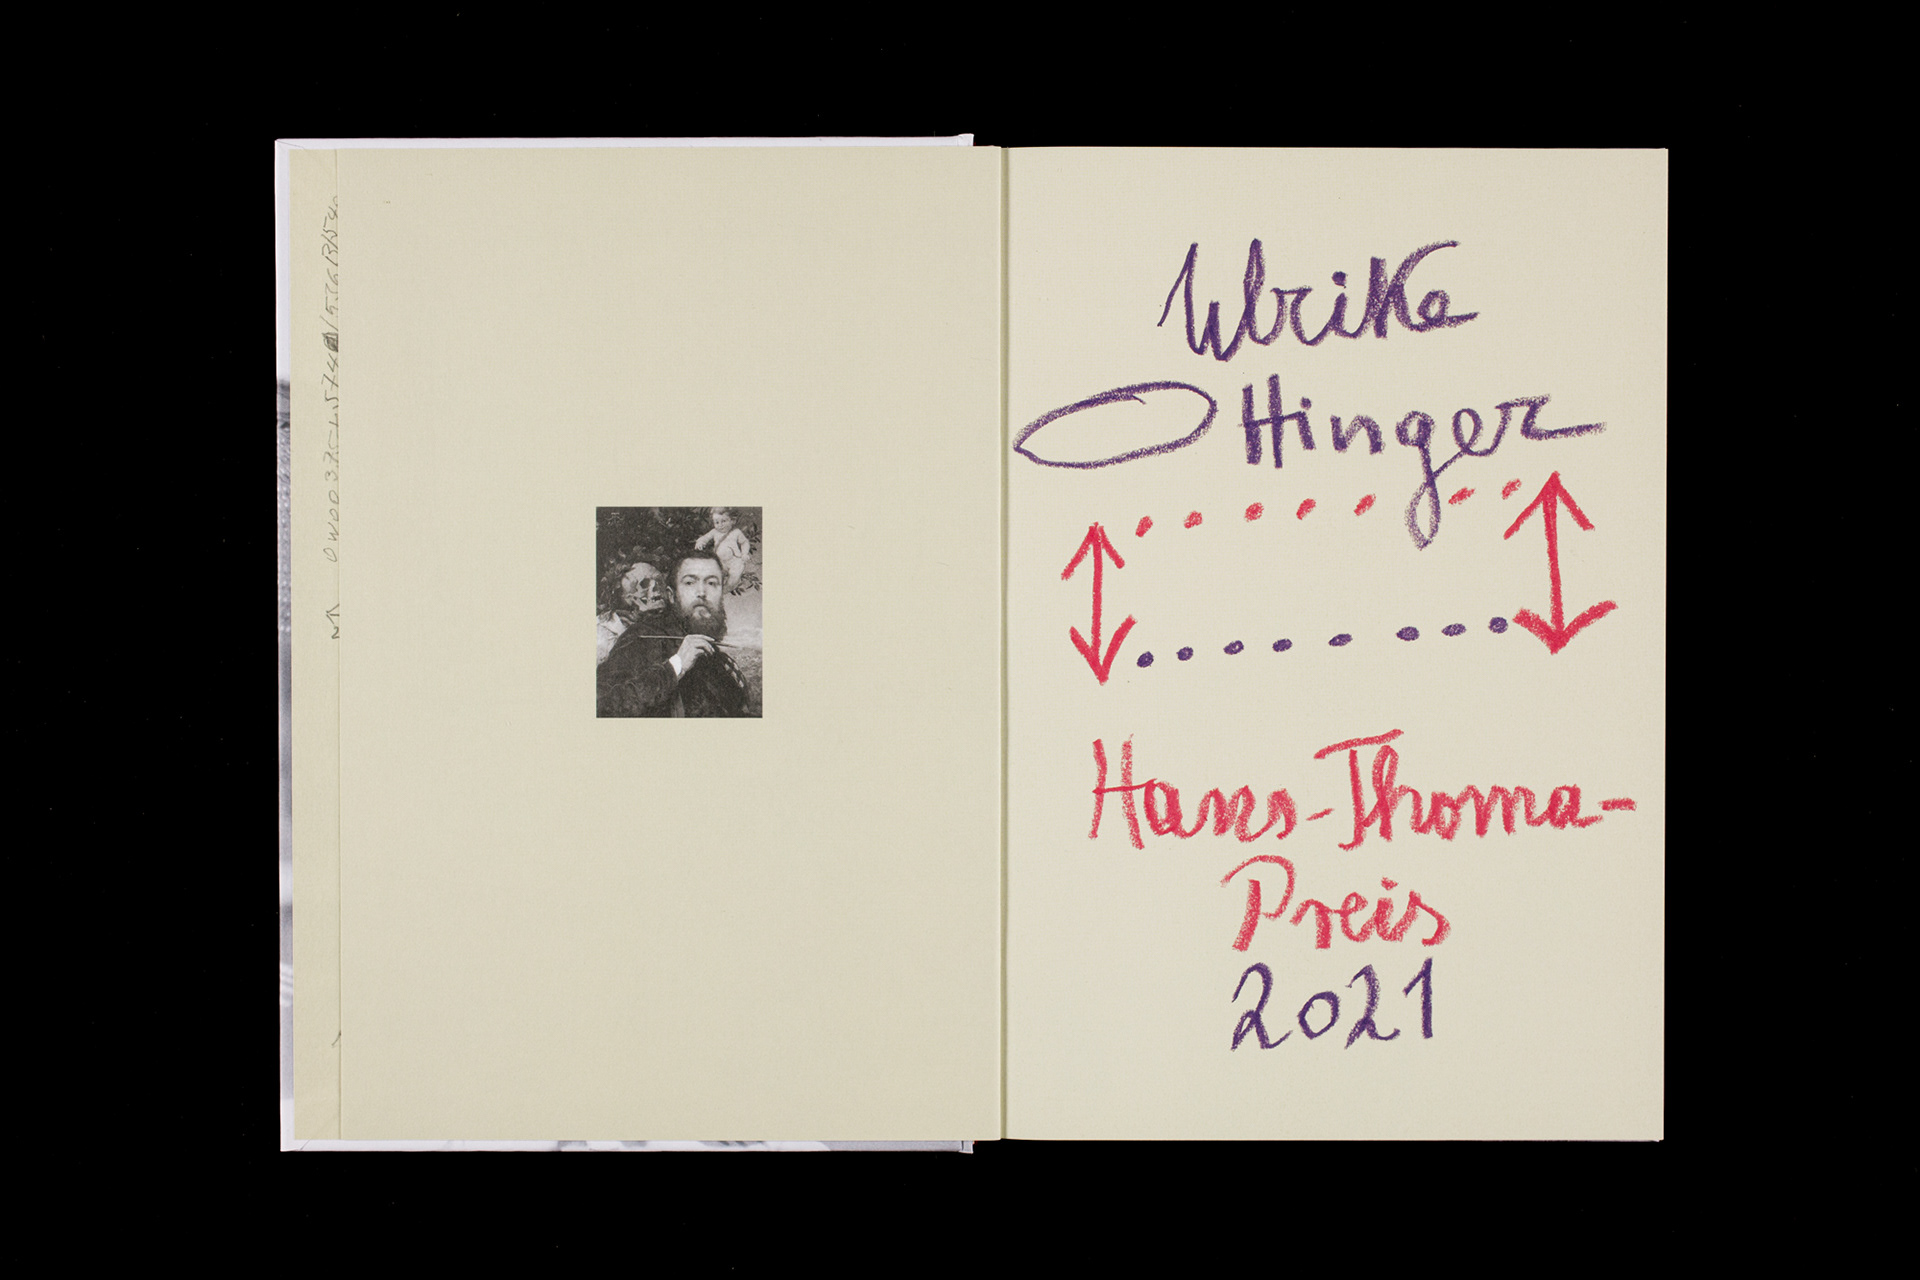 Ulrike
Ottinger
Hans-Thoma-
Preis
2021